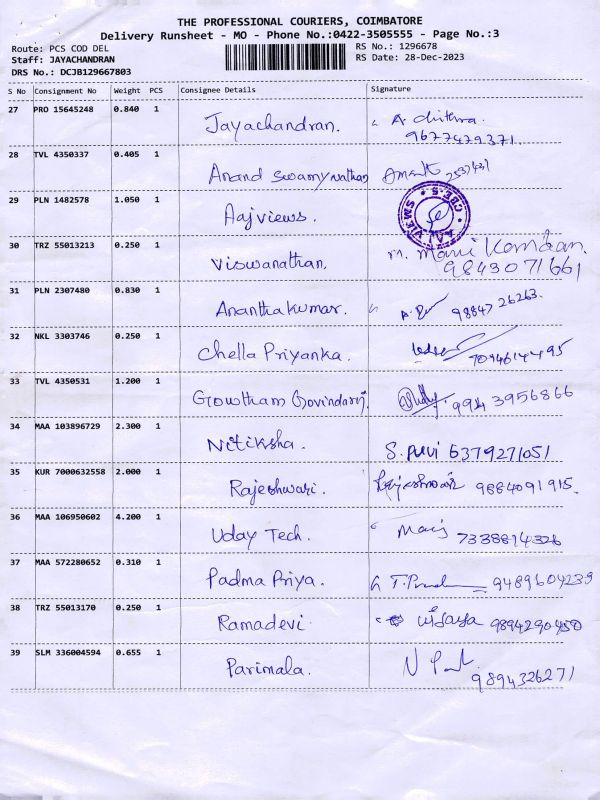 THE PROFESSIONAL COURIERS, COIMBATORE
Delivery Runsheet - MO - Phone No.:0422-3505555 - Page No.:3
Route: PCS COD DEL RS No.: 1296678
Staff: JAYACHANDRAN RS Date: 28-Dec-2023
DRS No.: DCJB129667803
S No Consignment No Weight PCS Consignee Details Signature
27 PRO 15645248 0.840 1 Jayachandran. A. chithra. 9677479371.
28 TVL 4350337 0.405 1 Anand Swamynathan
29 PLN 1482578 1.050 1 Aajviews.
30 TRZ 55013213 0.250 1 Viswanathan, M. Mani Kandan. 9843071661
31 PLN 2307480 0.830 1 Ananthakumar. 9884726263.
32 NKL 3303746 0.250 1 Chella Priyanka. 7094614495
33 TVL 4350531 1.200 1 Gowtham Govindaraj. 9943956866
34 MAA 103896729 2.300 1 Nitiksha. 6379271051
35 KUR 7000632558 2.000 1 Rajeshwari. 9884091915.
36 MAA 106950602 4.200 1 Uday Tech. 7338814326
37 MAA 572280652 0.310 1 Padma Priya. 9489604239
38 TRZ 55013170 0.250 1 Ramadevi. Vijaya 9894290450
39 SLM 336004594 0.655 1 Parimala. 9894326271